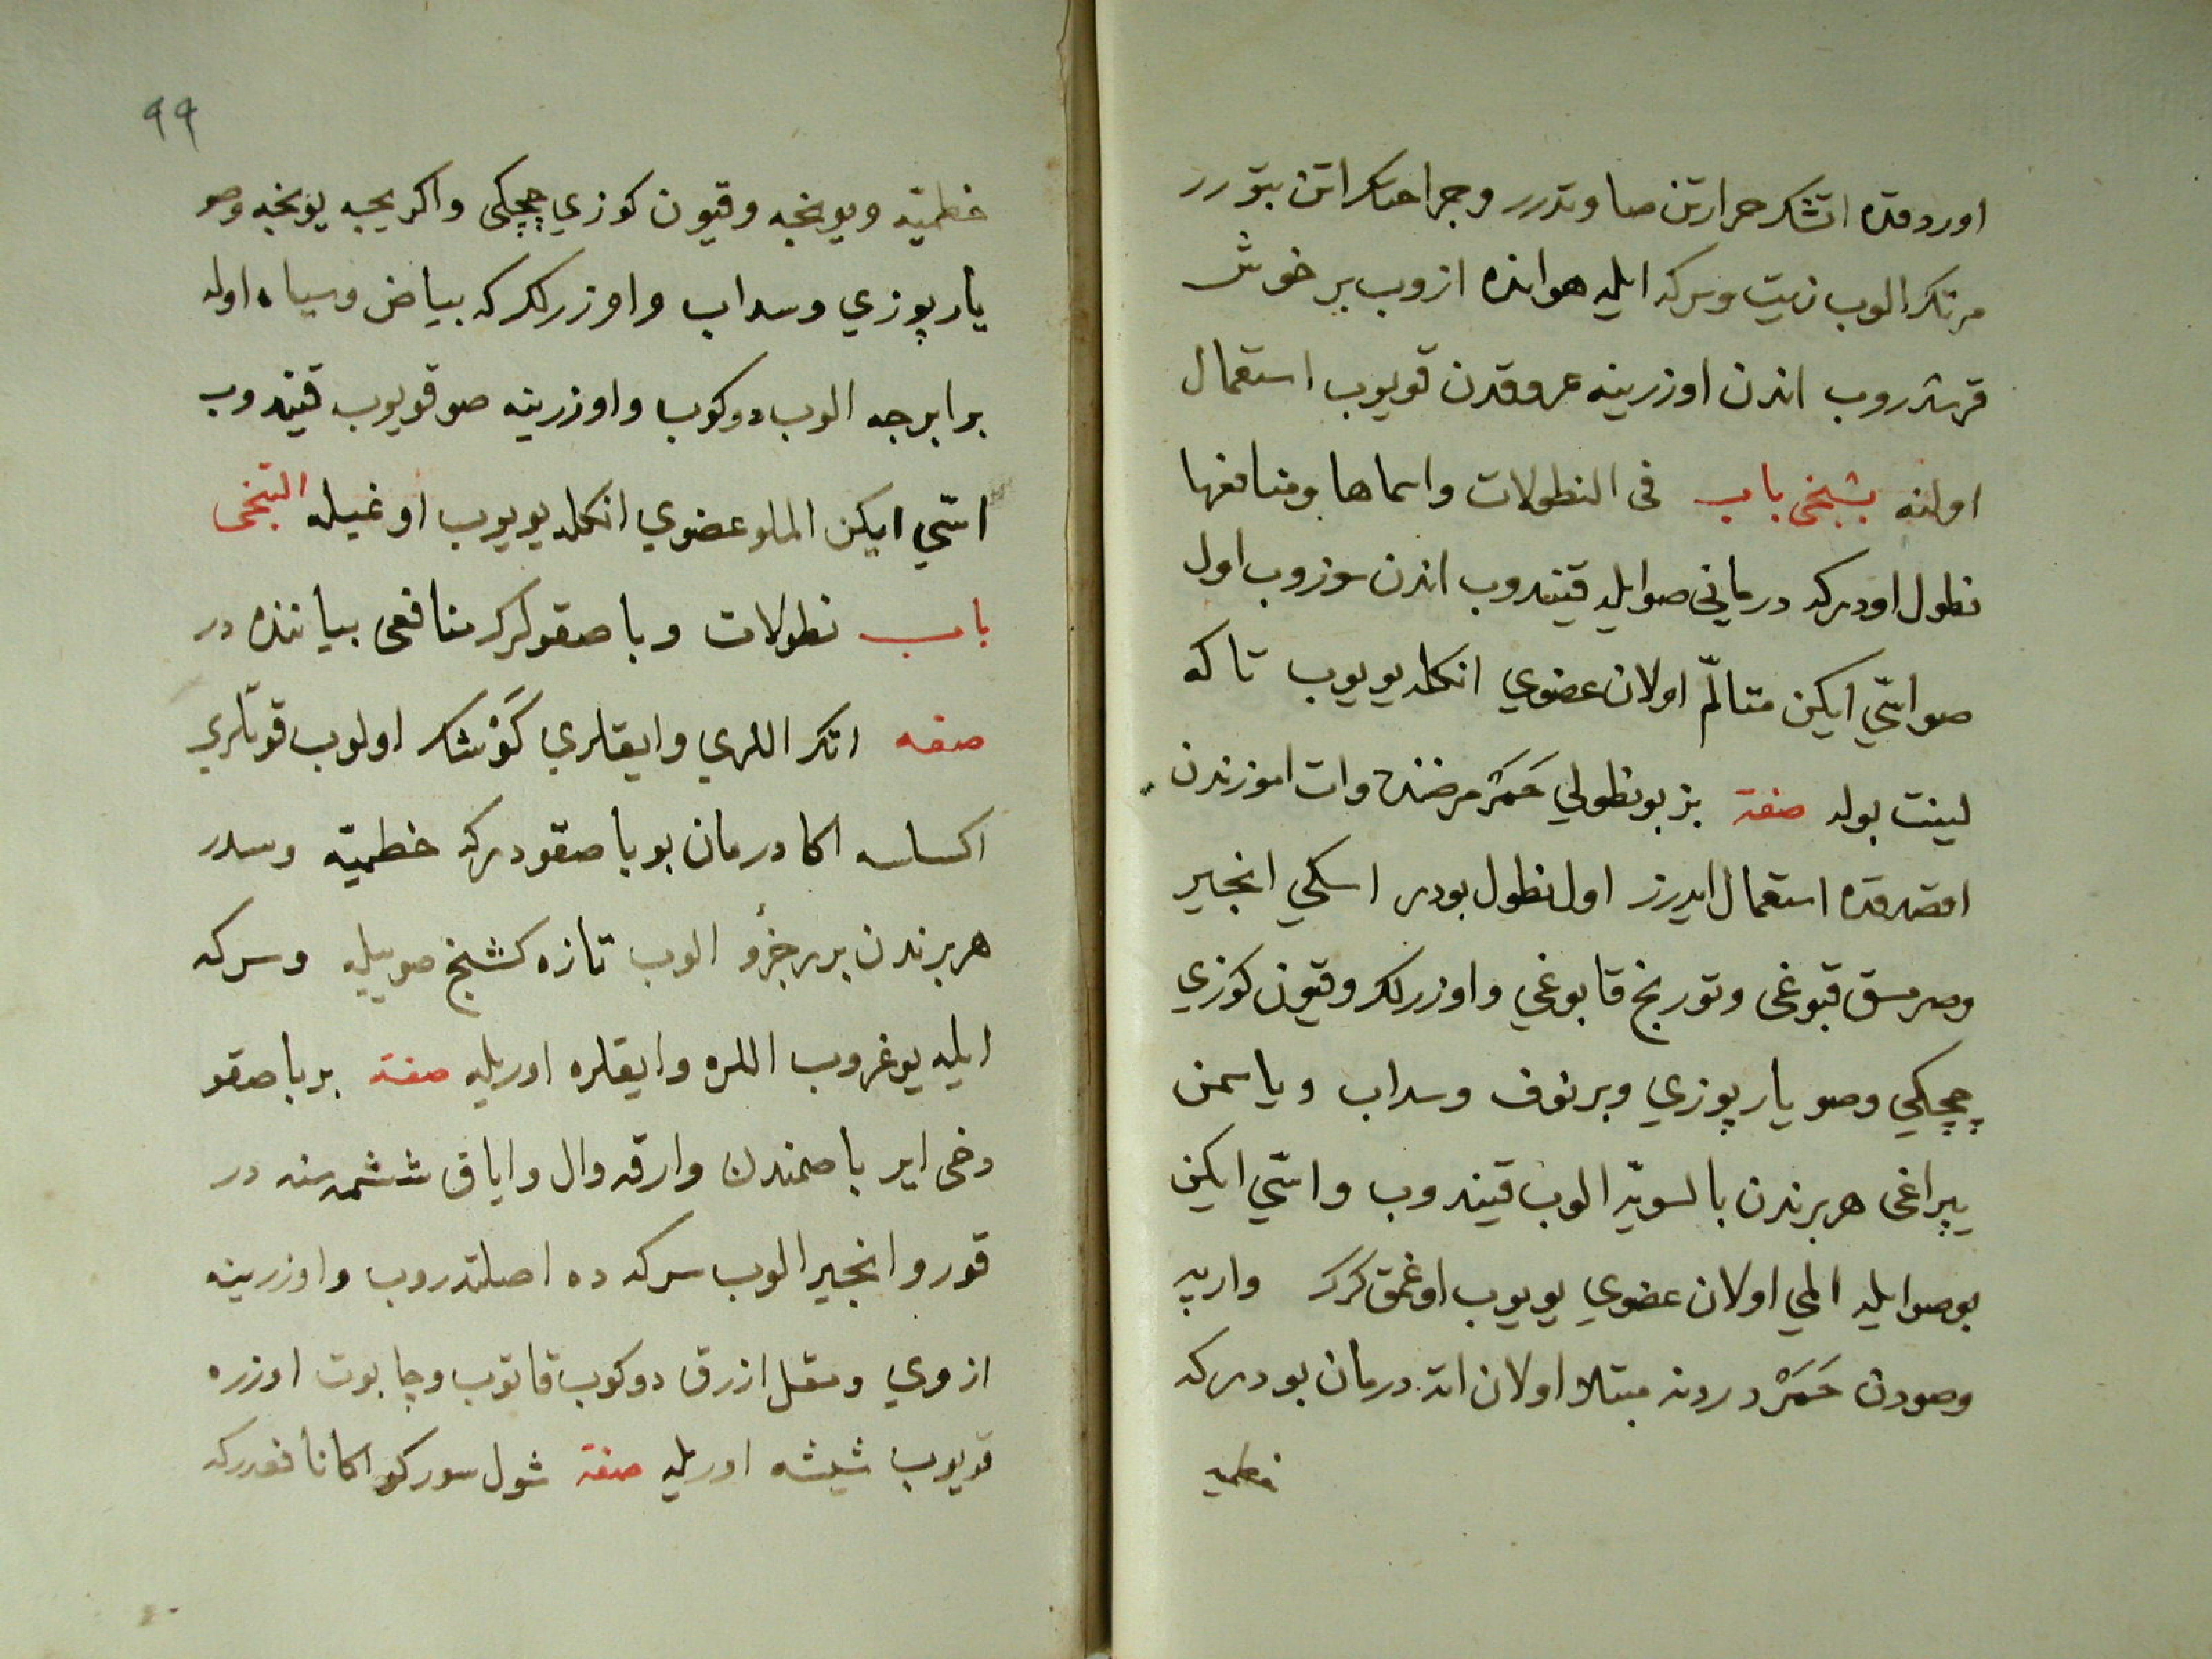 اوردقده اتشك حرارتن صاوندرر وجراحتلر اتن بتورر
مرتك الوب زيت وسركه ايله هوانده ازوب بر خوش
قرشدروب اندن اوزرينه عروقدن قويوب استعمال
اولنه بشنجى باب فى النطولات واسماها ومنافعها
نطول اودركه درمانى صوايله قيندروب اندن سوزوب اول
صو اسّي ايكن متالّم اولان عضوي انكله يويوب تا كه
لينت بوله صفة بز بو نطولي حَمَرْ مرضنده وات اموزندن
اقصدقده استعمال ايدرز اول نطول بودر اسكي انجير
وصرمسق قبوغى وتورنج قابوغي واوزرلك وقيون كوزي
چچكي وصو يارپوزي وبرنوف وسداب وياسمن
يپراغى هربرندن بالسويّه الوب قيندروب واسّي ايكن
بوصوايله المي اولان عضوي يويوب اوغمق كرك واربه
وصودن حَمَرْ دردنه مبتلا اولان اته درمان بودركه
خطميه
٩٩
خطميّه ويونجه وقيون كوزي چچكى واكريجه يونجه وصو
يارپوزي وسداب واوزرلك كه بياض وسياه اوله
برابرجه الوب دوكوب واوزرينه صو قويوب قيندروب
اسّي ايكن الملو عضوي انكله يويوب اوغيله التنجى
باب نطولات وباصقولرك منافعى بياننده در
صفه اتك اللري وايقلري كَوْشك اولوب قوتلري
اكساسه اكا درمان بو باصقودركه خطميّه وسدر
هربرندن برر جزؤ الوب تازه كشنج صوييله وسركه
ايله يوغروب اللره وايقلره اوريله صفة بر باصقو
دخى اير باصمندن وارقه وال واياق ششمسنه در
قورو انجير الوب سركه ده اصلتدروب واوزرينه
ازوي ومقل ازرق دوكوب قاتوب وچابوت اوزره
قويوب شيشه اوريله صفة شول سوركو اكا نافعدركه